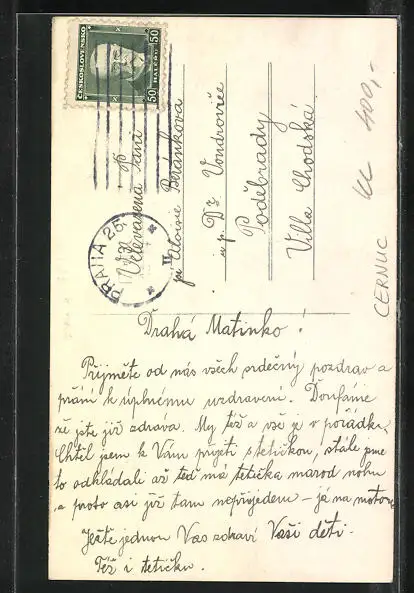 ČESKOSLOVENSKO
50 HALÉŘŮ 50
PRAHA 25
Velevážená Paní
Aloisie Beránková
u p. Dr Vondrovic
Poděbrady
Villa Chodská
Kč 400,-
CERNUC
Drahá Matinko!
Přijměte od nás všech srdečný pozdrav a
přání k úplnému uzdravení. Doufáme
že jste již zdráva. My též a vše je v pořádku.
Chtěl jsem k Vám přijeti s tetičkou, stále jsme
to odkládali až teď má tetička marod nohu
a proto asi již tam nepřijedem – já na motoru
Ještě jednou Vas zdraví Vaši děti.
Též i tetičku.